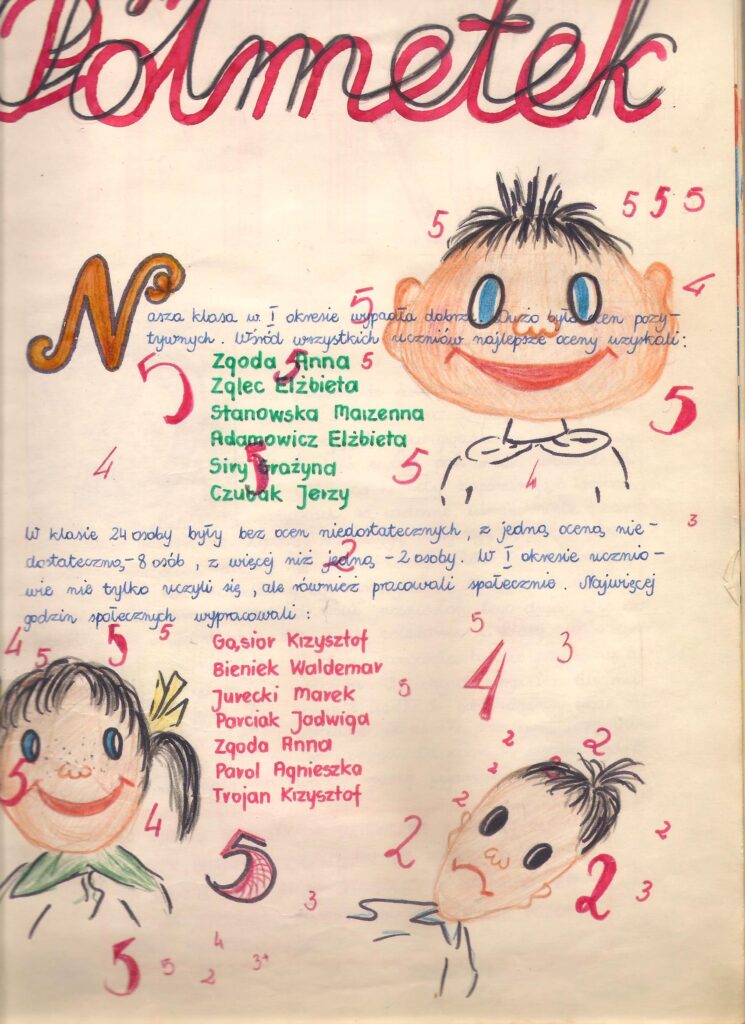 Półmetek
5 5 5 5
4
Nasza klasa w I okresie wypadła dobrze. Dużo było ocen pozy-
tywnych. Wśród wszystkich uczniów najlepsze oceny uzyskali:
5
Zgoda Anna
5 5
Zglec Elżbieta
5
Stanowska Marzenna
5
Adamowicz Elżbieta
Siry Grażyna
4 5 5 4
Czubak Jerzy
3
W klasie 24 osoby były bez ocen niedostatecznych, z jedną oceną nie-
dostateczną - 8 osób, z więcej niż jedną - 2 osoby. W I okresie ucznio-
2
wie nie tylko uczyli się, ale również pracowali społecznie. Najwięcej
godzin społecznych wypracowali:
4 5 5 5 5
Gąsior Krzysztof
3
Bieniek Waldemar
4
Jurecki Marek
5
Parciak Jadwiga
Zgoda Anna
2 2
Pavol Agnieszka
2 3
Trojan Krzysztof
5 2
4 2 2
5 2 3
3
5 5 4 2 3+